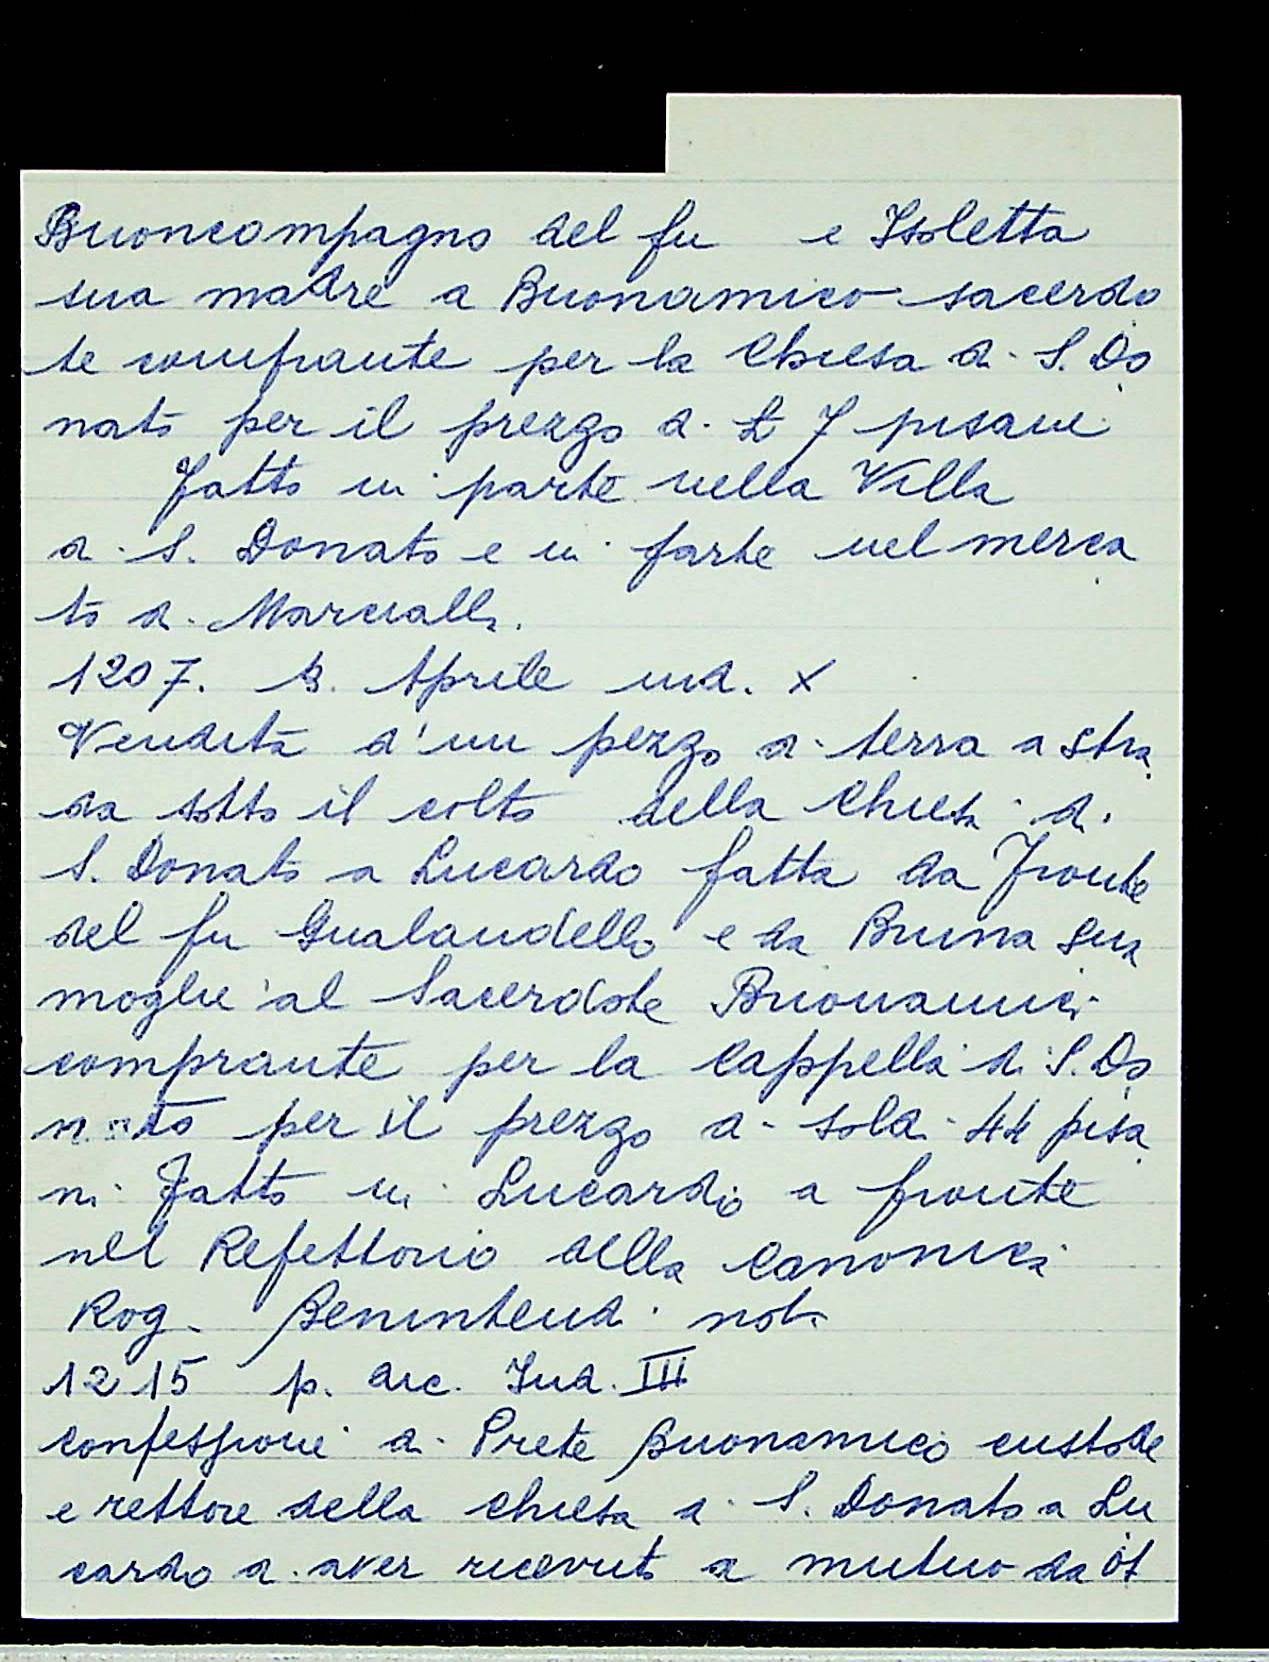 Buoncompagno del fu e Isoletta
sua madre a Buonamico sacerdo
te comprante per la Chiesa di S. Do
nato per il prezzo di £ 7 pisani
Fatto in parte nella Villa
di S. Donato e in parte nel merca
to di Marcialla.
1207. Aprile ind. X
Vendita d'un pezzo di terra a stra
da sotto il colto della Chiesa di
S. Donato a Lucardo fatta da Fronte
del fu Gualandello e da Bruna sua
moglie al Sacerdote Buonamici
comprante per la Cappella di S. Do
nato per il prezzo di soldi 44 pisa
ni Fatto in Lucardo a fronte
nel Refettorio della Canonica
Rog. Benintendi not.
1215 p. dic. Ind. III
confessione di Prete Buonamico custode
e rettore della chiesa di S. Donato a Lu
cardo di aver ricevuto a mutuo da Ot